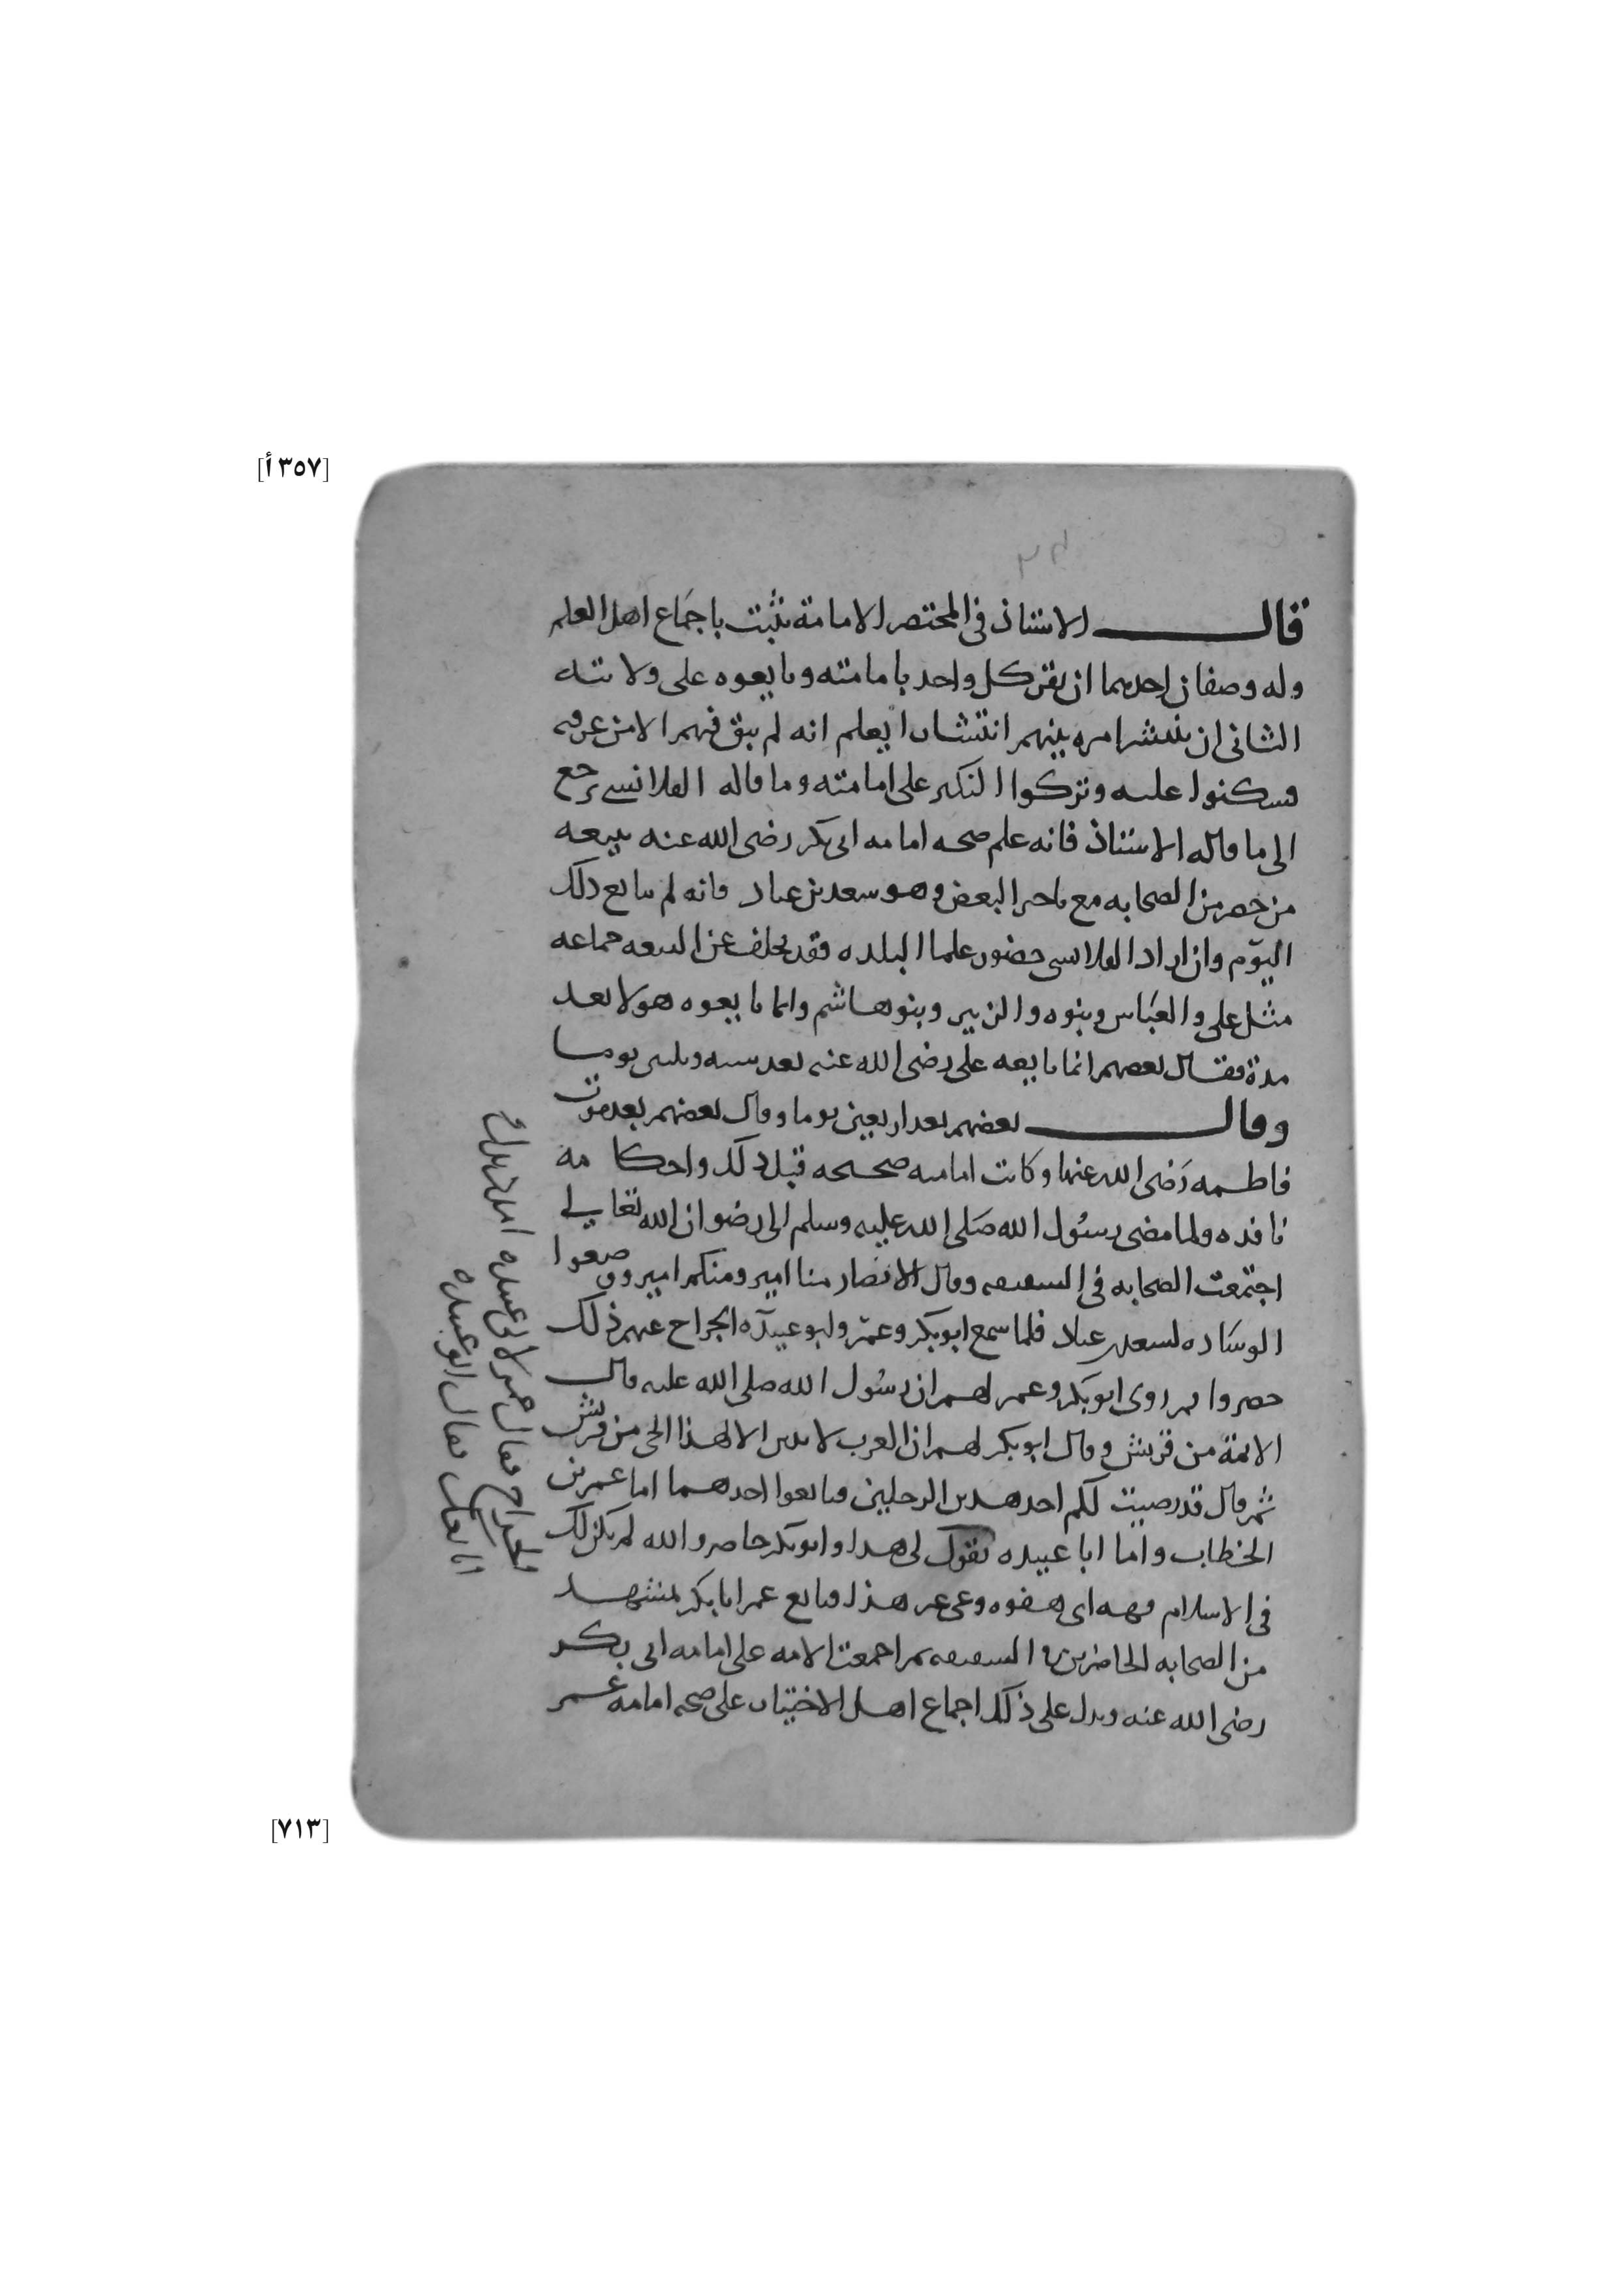 [٣٥٧أ]
قال الاستاذ في المختصر الامامة تثبت باجماع اهل العلم
وله وصفان احدهما ان يقر كل واحد بامامته وبايعوه على ولايته
الثاني ان ينتشر امره بينهم انتشارا يعلم انه لم يبق فيهم الا من عرفه
وسكنوا عليه وتركوا النكير على امامته وما قاله القلانسي يرجع
الى ما قاله الاستاذ فانه علم صحه امامه ابي بكر رضي الله عنه ببيعه
من حضر من الصحابه مع تاخر البعض وهو سعد بن عباد فانه لم يبايع ذلك
اليوم وان اراد القلانسي حضور علما البلده فقد تخلف عن البيعه جماعه
مثل علي والعباس وبنوه والزبير وبنو هاشم وانما بايعوه هولا بعد
مدة فقال بعضهم انما بايعه علي رضي الله عنه بعد سته وثلثين يوما
وقال بعضهم بعد اربعين يوما وقال بعضهم بعد موت
فاطمه رضي الله عنها وكانت امامته صحيحه قبل ذلك واحكامه
نافذه ولما مضى رسول الله صلى الله عليه وسلم الى رضوان الله تعالى
اجتمعت الصحابه في السقيفه وقال الانصار منا امير ومنكم امير ووضعوا
الوساده لسعد بن عباد فلما سمع ابو بكر وعمر وابو عبيده الجراح عنهم ذلك
حضروا ثم روى ابو بكر وعمر لهم ان رسول الله صلى الله عليه قال
الائمة من قريش وقال ابو بكر لهم ان العرب لا تدين الا لهذا الحي من قريش
ثم قال قد رضيت لكم احد هذين الرجلين فبايعوا احدهما اما عمر بن
الخطاب واما ابا عبيده تقول لي هذا وابو بكر حاضر والله لم يكن لك
في الاسلام فهه اي هفوه وعي غير هذا فبايع عمر ابا بكر بمشهد
من الصحابه الحاضرين في السقيفه ثم اجمعت الامه على امامه ابي بكر
رضي الله عنه ويدل على ذلك اجماع اهل الاختيار على صحه امامه عمر
فقال عمر لابي عبيده امدد يدك
ابايعك فقال ابو عبيده
[٧١٣]